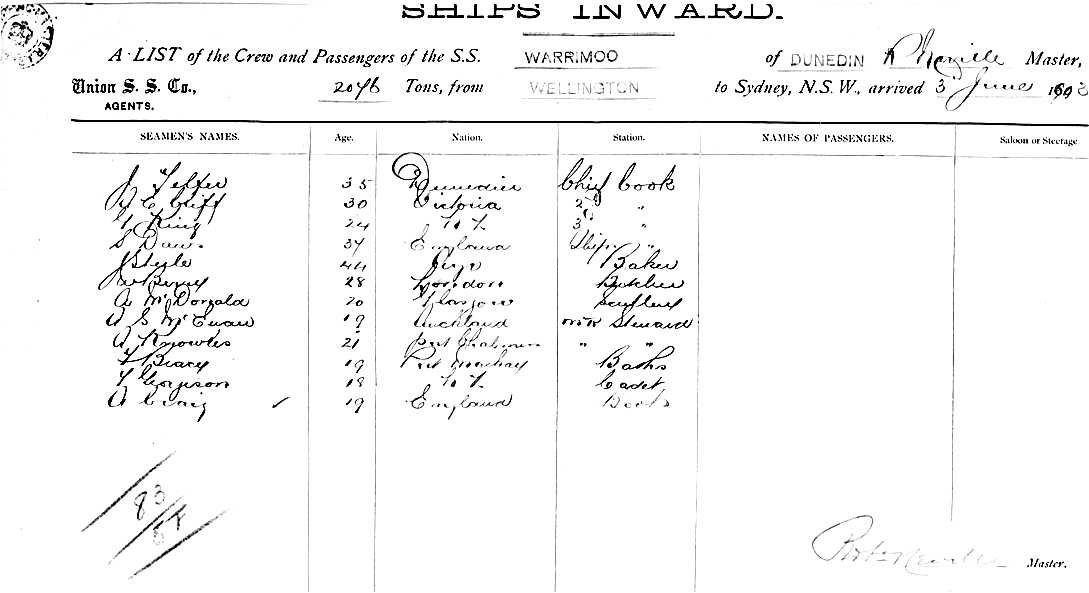 SHIPS INWARD.
A LIST of the Crew and Passengers of the S.S. WARRIMOO of DUNEDIN R Neville Master,
Union S. S. Co., AGENTS. 2076 Tons, from WELLINGTON to Sydney, N.S.W., arrived 3 June
SEAMEN'S NAMES. Age. Nation. Station. NAMES OF PASSENGERS. Saloon or Steerage
J Telfer 35 Dunedin Chief Cook
30 Victoria 2 "
King 24 N Z 3 "
S 34 England Ships "
J Steele 44 Baker
Berry 28 London Butcher
A McDonald 20 Glasgow Scullery
A S McEwan 19 Auckland Steward
A Knowles 21 Port Chalmers " "
F Bracy 19 Port Mackay Baths
18 N Z Cadet
A Craig ✓ 19 England Boots
83
Robt Neville Master.